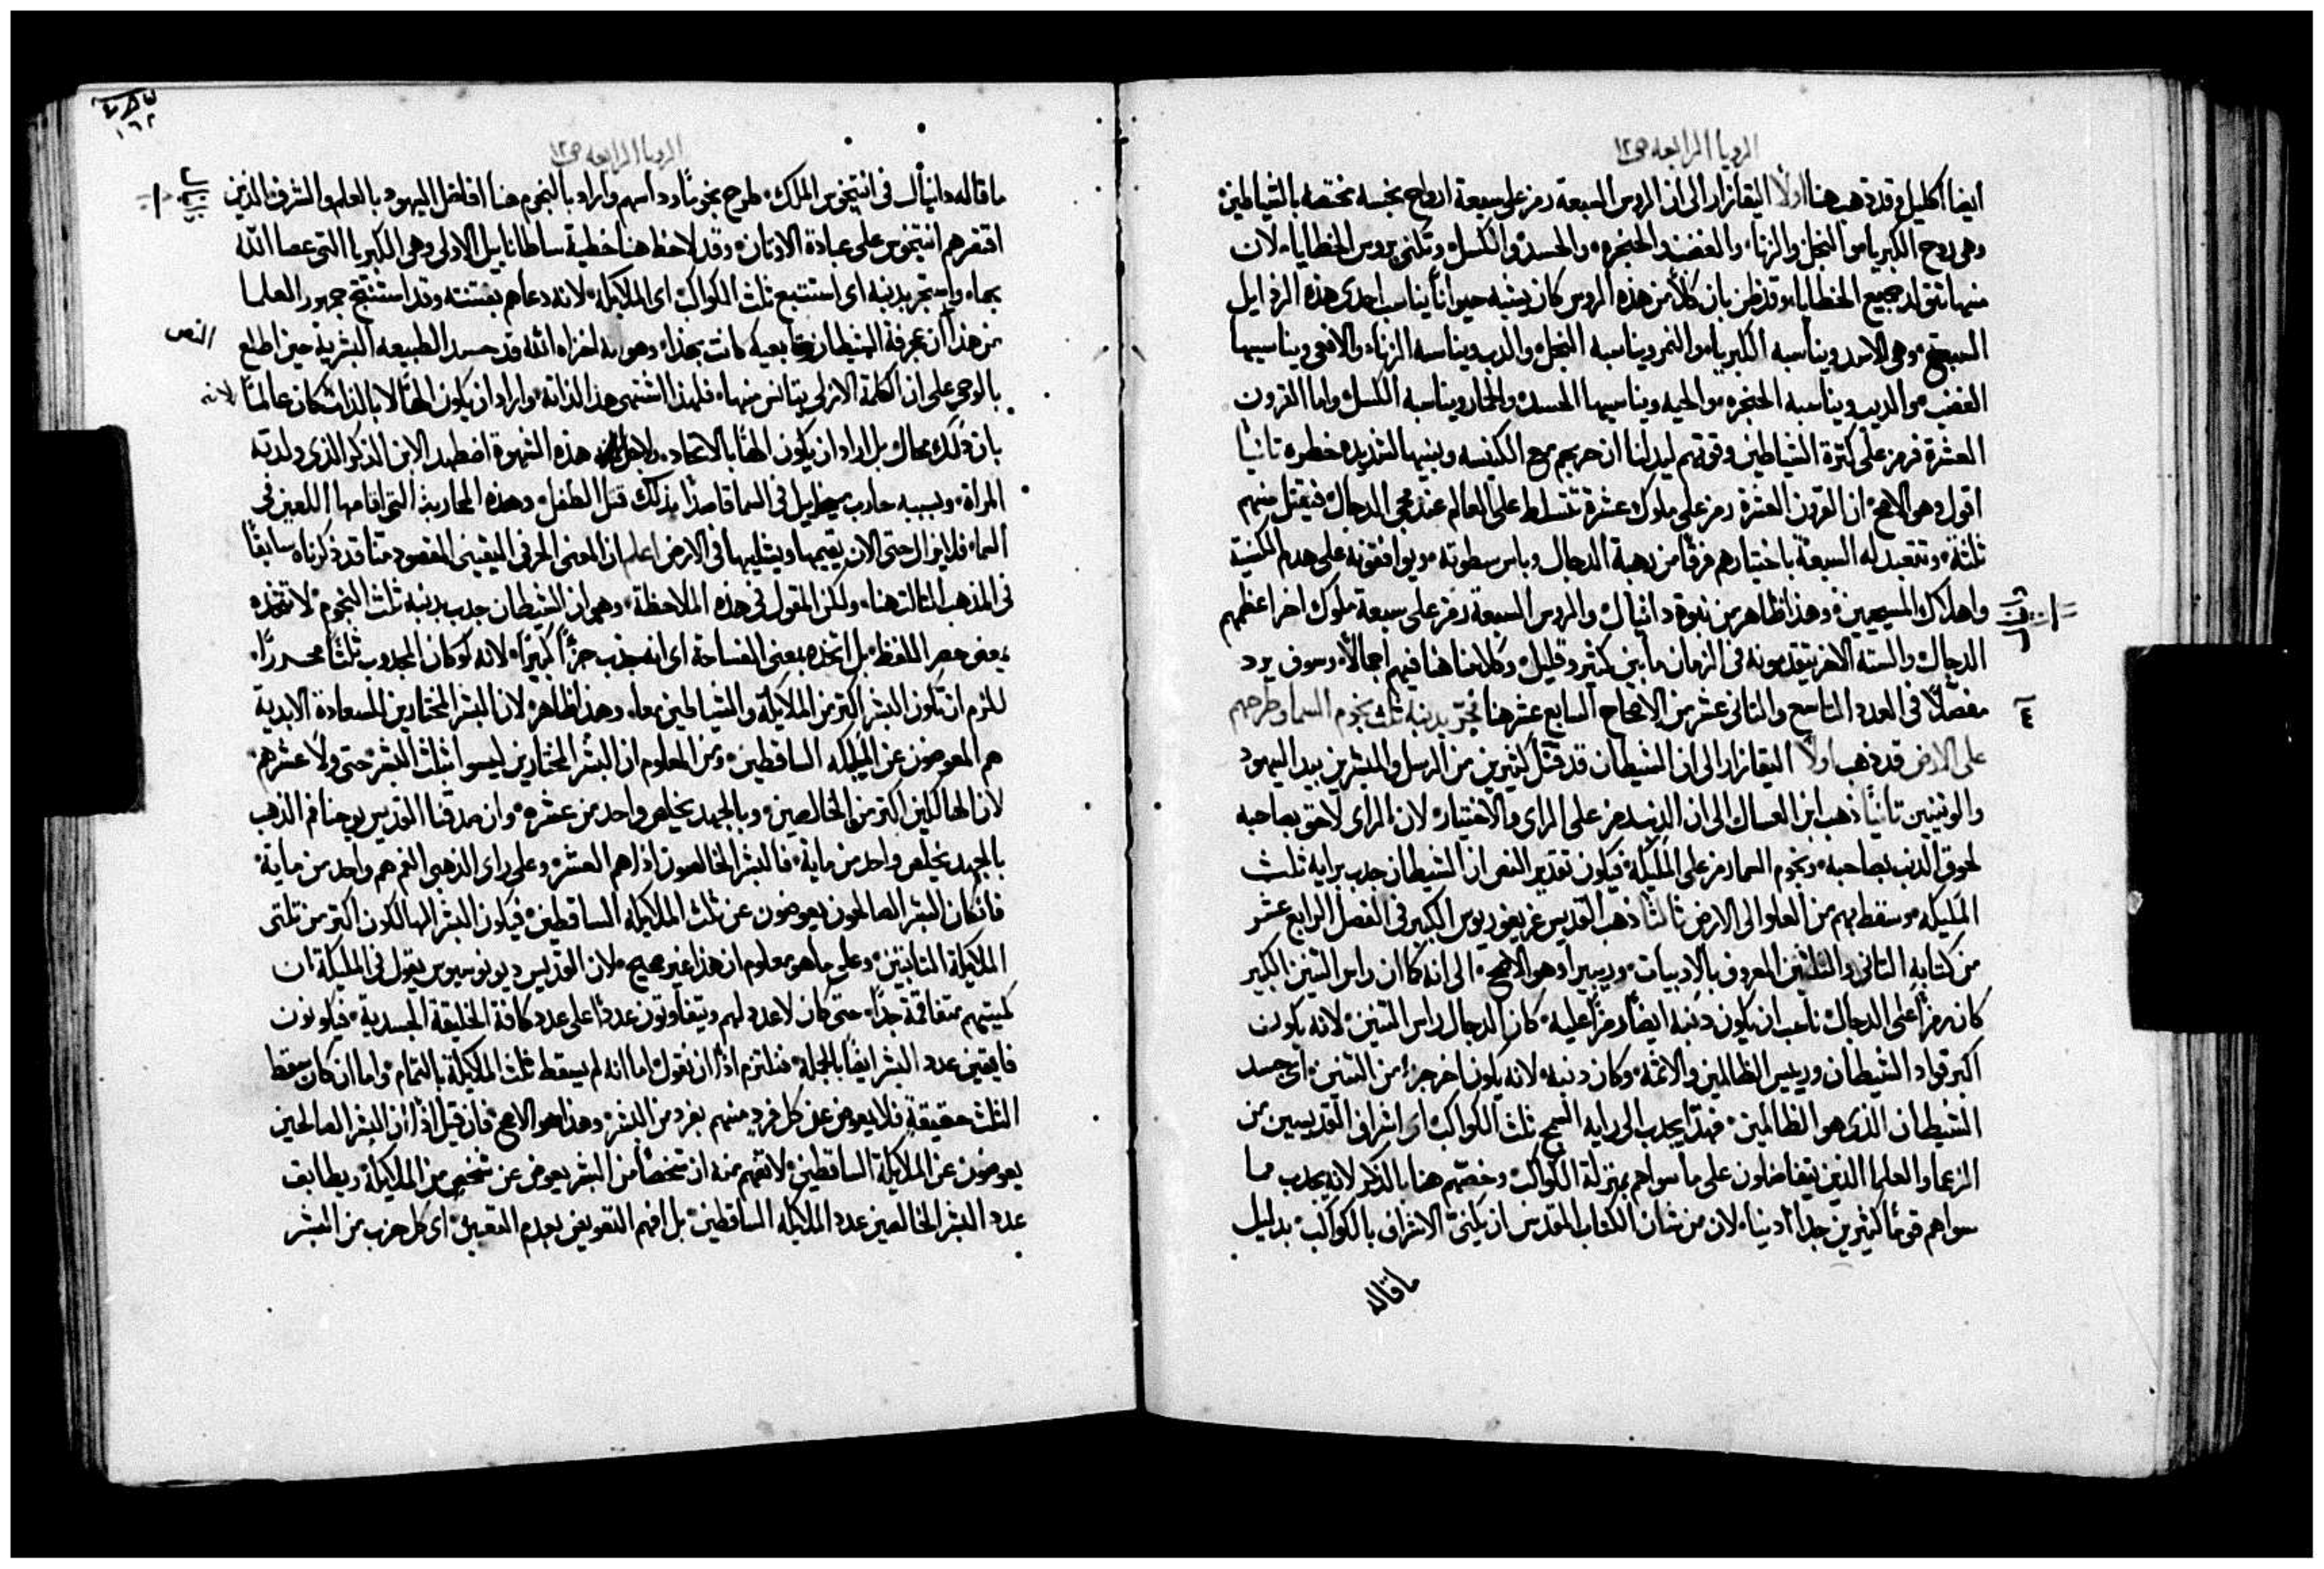 الرويا الرابعه ص١٢
ايضا اكليل وقد ذهب هنا اولًا اليقازار الى ان الروس السبعة رمز على سبعة ارواح نجسه مختصه بالشياطين
وهى روح الكبريا والبخل والزنا والغضب والحنجره والحسد والكسل وتكنى بروس الخطايا لان
منها تتولد جميع الخطايا وقد ظن بان كلًا من هذه الروس كان يشبه حيوانًا يناسب احدى هذه الرذايل
السبع وهى الاسد ويناسبه الكبريا والنمر ويناسبه البخل والدب ويناسبه الزنا والافعى ويناسبها
الغضب والديب ويناسبه الحنجره والحيه ويناسبها الحسد والحمار ويناسبه الكسل واما القرون
العشرة فرمز على كثرة الشياطين وقوتهم ليدلنا ان حربهم مع الكنيسه وبنيها شديده خطره ثانيًا
اقول وهو الاصح ان القرون العشرة رمز على ملوك عشرة تتسلط على العالم عند مجى الدجال فيقتل منهم
ثلثة وتتعبد له السبعة باختيارهم فرقًا من رهبة الدجال وباس سطوته ويوافقونه على هدم الكنيسة
واهلاك المسيحيين وهذا ظاهر من نبوة دانيال والروس السبعة رمز على سبعة ملوك اخر اعظمهم
الدجال والسته الاخر يتقدمونه فى الزمان ما بين كثير وقليل وكلامنا هنا فيهم اجمالًا وسوف يرد
مفصلًا فى العدد التاسع والثانى عشر من الاصحاح السابع عشر هنا فجر بدنبه ثلث نجوم السما وطرحهم
٤
على الارض قد ذهب اولًا اليقازار الى ان الشيطان قد قتل كثيرين من الرسل والمبشرين بيد اليهود
والوثنيين ثانيًا ذهب ابن العسال الى ان الدنب رمز على الراى والاختيار لان الراى لاحق بصاحبه
لحوق الدنب بصاحبه ونجوم السما رمز على المليكه فيكون تقدير النص ان الشيطان جدب برايه ثلث
المليكه وسقط بهم من العلو الى الارض ثالثًا ذهب القديس غريغوريوس الكبير فى الفصل الرابع عشر
من كتابه الثانى والثلثين المعروف بالادبيات وريبيرا وهو الاصح الى انه كما ان راس التنين الكبير
كان رمزًا على الدجال ناسب ان يكون دنبه ايضًا رمزًا عليه كان الدجال راس التنين لانه يكون
اكبر قواد الشيطان وريس الظالمين والاثمة وكان دنبه لانه يكون اخر جزء من التنين اى جسد
الشيطان الذى هو الظالمين فهذا يجدب الى رايه السمج ثلث الكواكب اى اشراف القديسين من
الزعما والعلما الذين يتفاضلون على ما سواهم بمنزلة الكواكب وخصهم هنا بالذكر لانه يجدب مما
سواهم قومًا كثيرين جدًا ادنيا لان من شان الكتاب المقدس ان يكنى الاشراف بالكواكب بدليل
ما قاله
١٦٢
الرويا الرابعه ص١٢
ما قاله دانيال فى انتيخوس الملك طرح نجومًا وداسهم واراد بالنجوم هنا افاضل اليهود بالعلم والشرف الذين
اقتفرهم انتيخوس على عبادة الاوثان وقد لاحظ هنا خطية ساطانا ييل الاولى وهى الكبريا التى عصا الله
بها واستجر بدنبه اى استتبع ثلث الكواكب اى الملايكه لانه دعاهم بفتنته وقد استنتج جمهور العلما
من هذا ان معرفة الشيطان وتابعيه كانت بهذا وهو انه اخزاه الله قد حسد الطبيعه البشرية حين اطلع
النص
بالوحى على ان الكلمة الازلى يتانس منها فلهذا اشتهى هذا لذاته واراد ان يكون الهًا لا بالذات كان عالمًا
لانه
بان ذلك محال بل اراد ان يكون الهًا بالاتحاد ولاجل هذه الشهوة اضطهد الابن الذكر الذى ولدته
المراة وبسببه حارب ميخاييل فى السما قاصدًا بذلك قتل الطفل وهذه المحاربة التى اقامها اللعين فى
السما فلا يزال حتى الان يقيمها ويثليها فى الارض اعلم ان المعنى الحرفى اليقينى المقصود متا قد ذكرناه سابقًا
فى المذهب الثالث هنا ولكن المقول فى هذه الملاحظة وهو ان الشيطان جدب بدنبه ثلث النجوم لا تتخذه
بمعنى حصر اللفظ بل اتخذه بمعنى الفساحة اى انه جذب جزًا كبيرًا لانه لو كان المجدوب ثلثًا محدودًا
للزم ان تكون البشر اكثر من الملايكة والشياطين معا وهذا ظاهر لان البشر المختارين للسعادة الابدية
هم المعوضون عن المليكه الساقطين ومن المعلوم ان البشر المختارين ليسوا ثلث البشر حتى ولا عشرهم
لان الهالكين اكثر من الخالصين وبالجهد يخلص واحد من عشره وان صدقنا القديس يوحنا فم الذهب
بالجهد يخلص واحد من ماية فالبشر الخالصون اذا هم العشر وعلى راى الذهبى الفم هم واحد من ماية
فان كان البشر الصالحون يعوضون عن ثلث الملايكه الساقطين فيكون البشر الهالكون اكثر من ثلثى
الملايكة الثابتين وعلى ما هو معلوم ان هذا غير صحيح لان القديس ديونوسيوس يقول فى المليكة ان
كميتهم متفاقمة جدًا حتى كان لا عدد لهم ويتفاوتون عددًا على عدد كافة الخليقة الجسدية فيكونون
فايقين عدد البشر ايضًا بالجملة فنلتزم اذًا ان نقول اما انه لم يسقط ثلث الملايكة بالتمام واما ان كان سقط
الثلث حقيقة فلا يعوض عن كل فرد منهم بفرد من البشر وهذا هو الاصح فان قيل اذًا ان البشر الصالحين
يعوضون عن الملايكة الساقطين لا تفهم منه ان شخصًا من البشر يعوض عن شخص من الملايكة ويطابق
عدد البشر الخالصين عدد الملايكه الساقطين بل افهم التعويض بعدم التعيين اى كل حزب من البشر